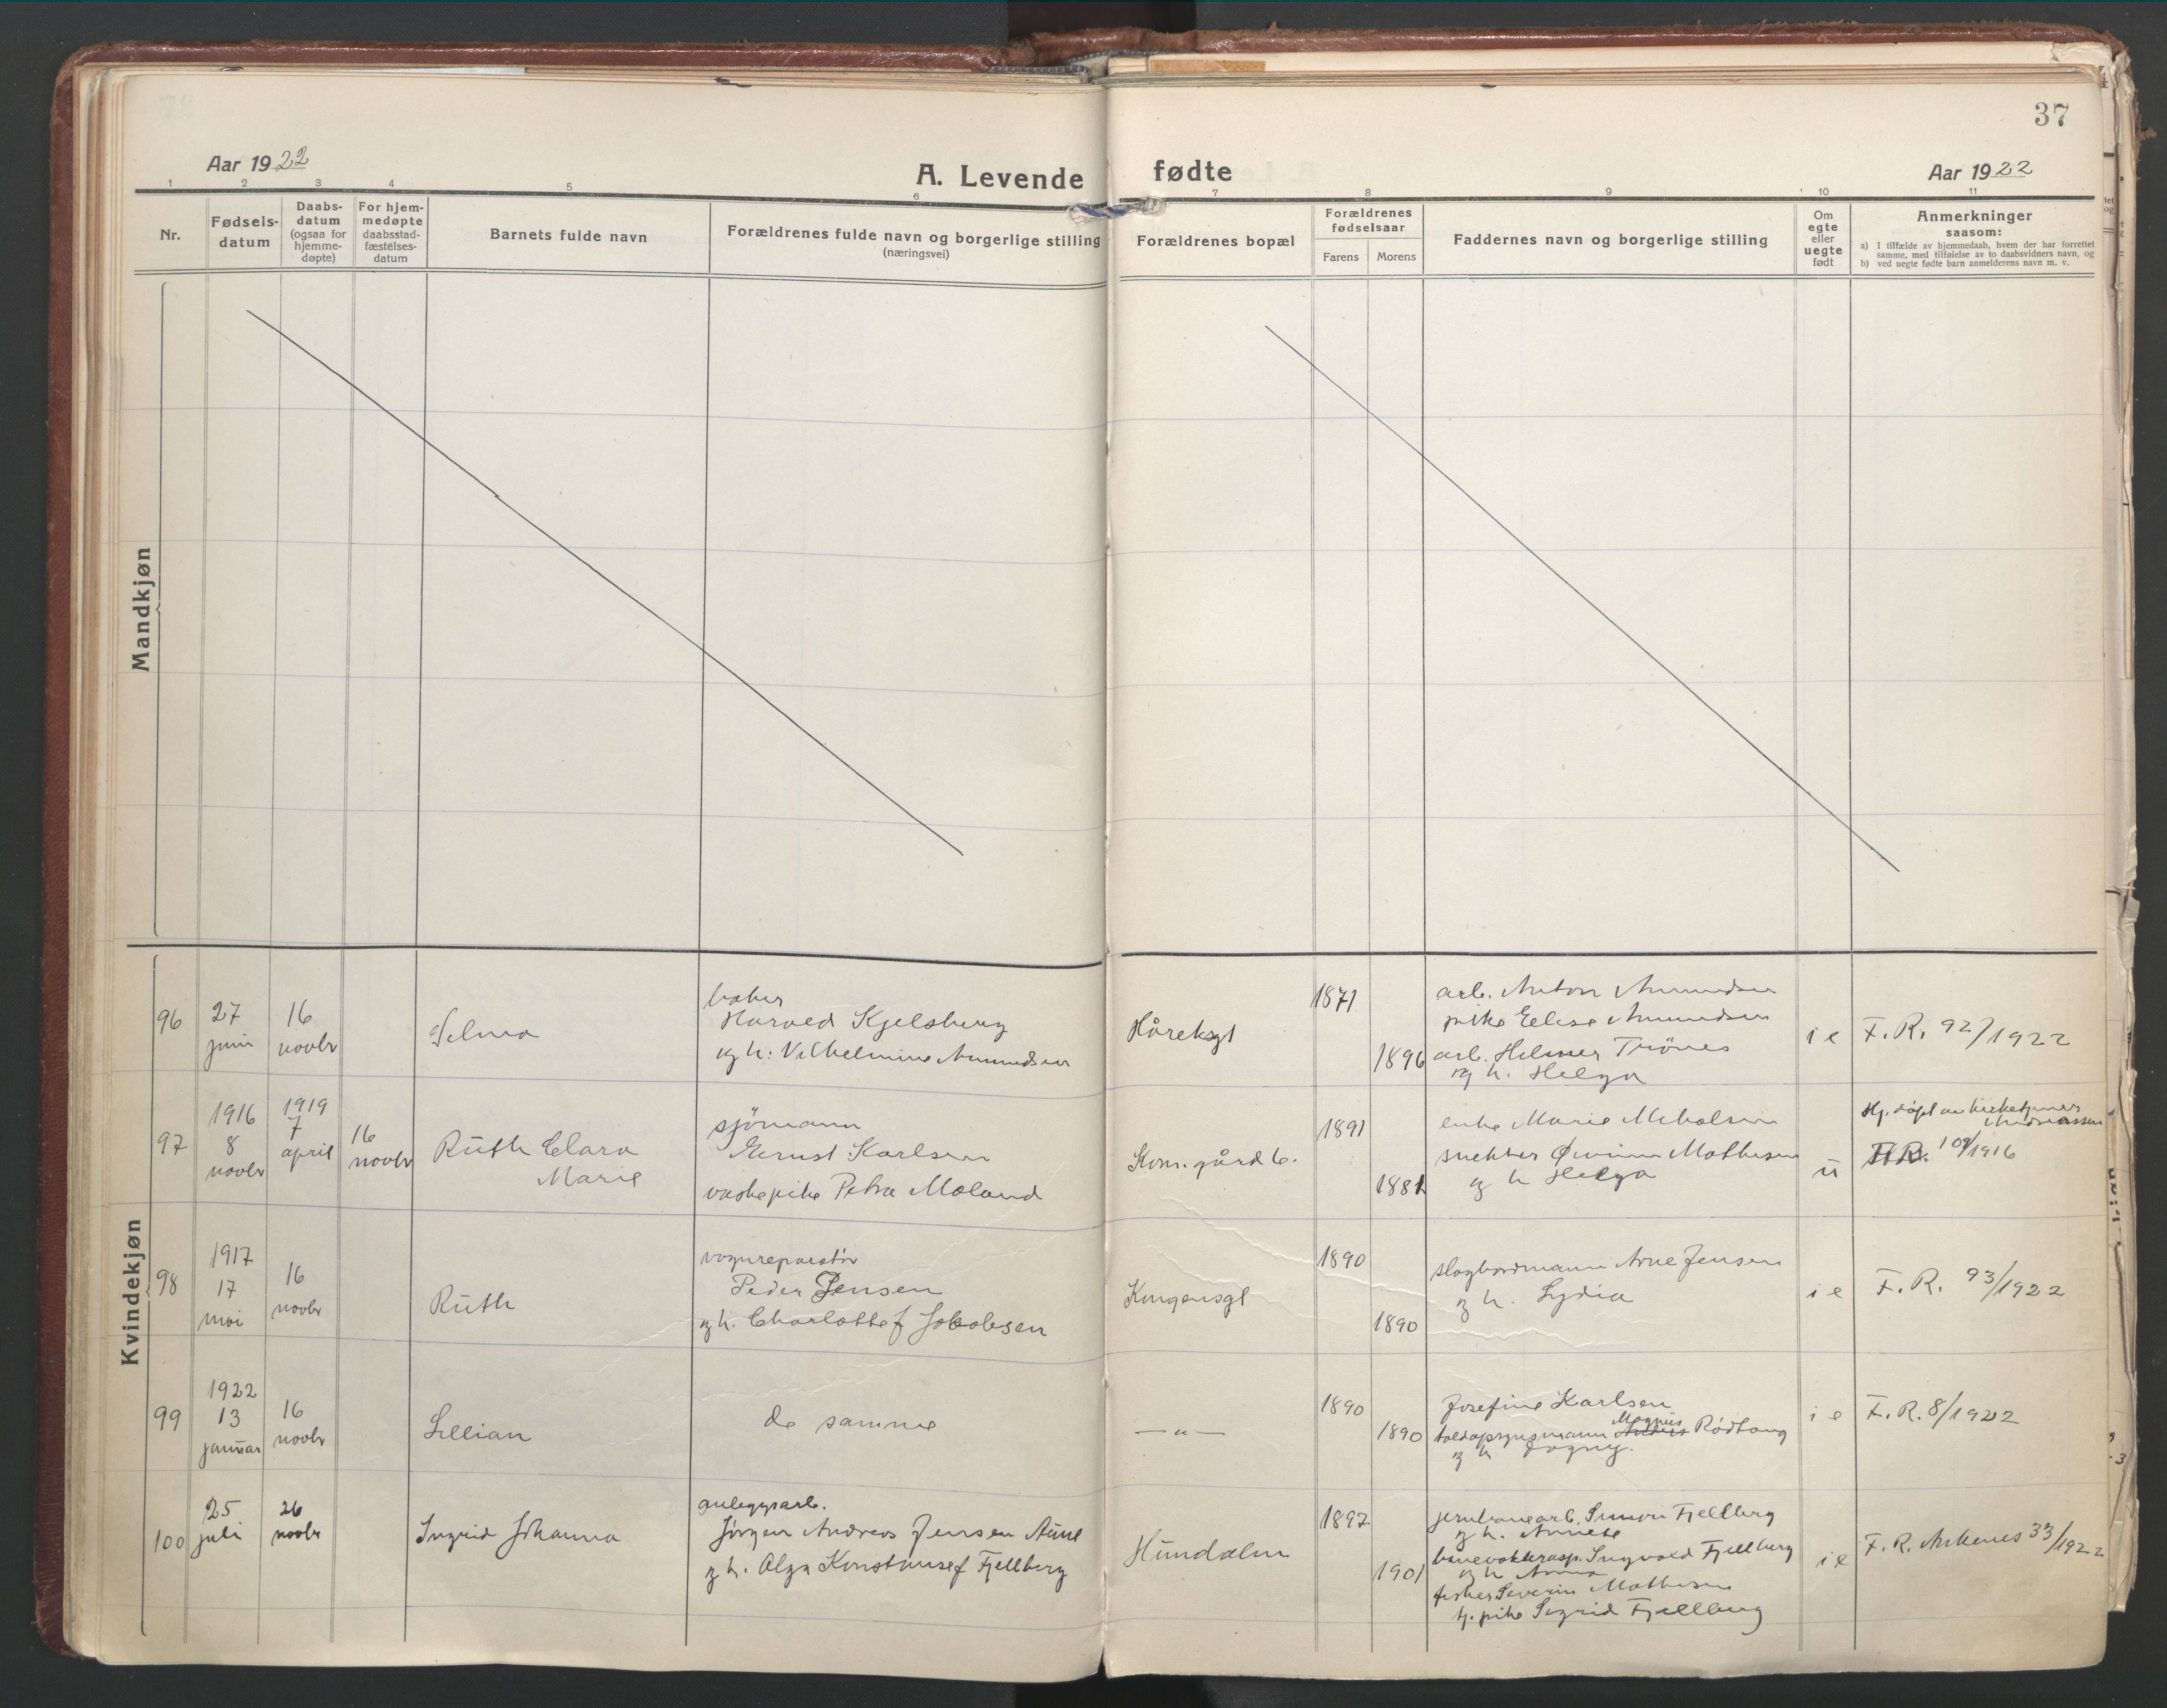 37
Aar 1922
A. Levende fødte
Aar 1922
1 2 3 4 5 6 7 8 9 10 11
Nr.
Fødsels-
datum
Daabs-
datum
(ogsaa for
hjemme-
døpte)
For hjem-
medøpte
daabsstad-
fæstelses-
datum
Barnets fulde navn
Forældrenes fulde navn og borgerlige stilling
(næringsvei)
Forældrenes bopæl
Forældrenes
fødselsaar
Farens Morens
Faddernes navn og borgerlige stilling
Om
egte
eller
uegte
født
Anmerkninger
saasom:
a) I tilfælde av hjemmedaab, hvem der har forrettet
samme, med tilføielse av to daabsvidners navn, og
b) ved uegte fødte barn anmelderens navn m. v.
Mandkjøn
Kvindekjøn
96
27
juni
16
novbr
Selma
baker
Harald Kjelsberg
og h: Vilhelmine Amundsen
Håreksgt
1871
1896
arb. Anton Amundsen
pike Elise Amundsen
arb. Hilmer Trönes
og h. Helga
i e
F. R. 92/1922
97
1916
8
novbr
1919
7
april
16
novbr
Ruth Clara
Marie
sjömann
Ernst Karlsen
vaskepike Petra Moland
Kom. gård 6.
1891
1881
enke Marie Nicholsen
snekker Øivinn Mathisen
og h Helga
u
Hj. døpt av
Andreassen
F.R. 109/1916
98
1917
17
mai
16
novbr
Ruth
vognreparatör
Peder Jensen
og h. Charlotte f Jakobsen
Kongensgt
1890
1890
Arne Jensen
og h. Lydia
i e
F. R. 93/1922
99
1922
13
januar
16
novbr
Lillian
de samme
— " —
1890
1890
Josefine Karlsen
toldopsynsmann Anders Magnus Rødtang
og h Dagny.
i e
F. R. 8/1922
100
25
juli
26
novbr
Ingrid Johanna
anleggsarb.
Jørgen Andreas Jensen Aune
og h. Olga Konstanse f Fjellberg
Hundalen
1897
1901
jernbanearb. Simon Fjellberg
og h. Annete
banevokterasp. Ingvald Fjellberg
og h Anna
fisker Severin Mathisen
tj. pike Sigrid Fjellberg
i e
F. R. Ankenes 33/1922